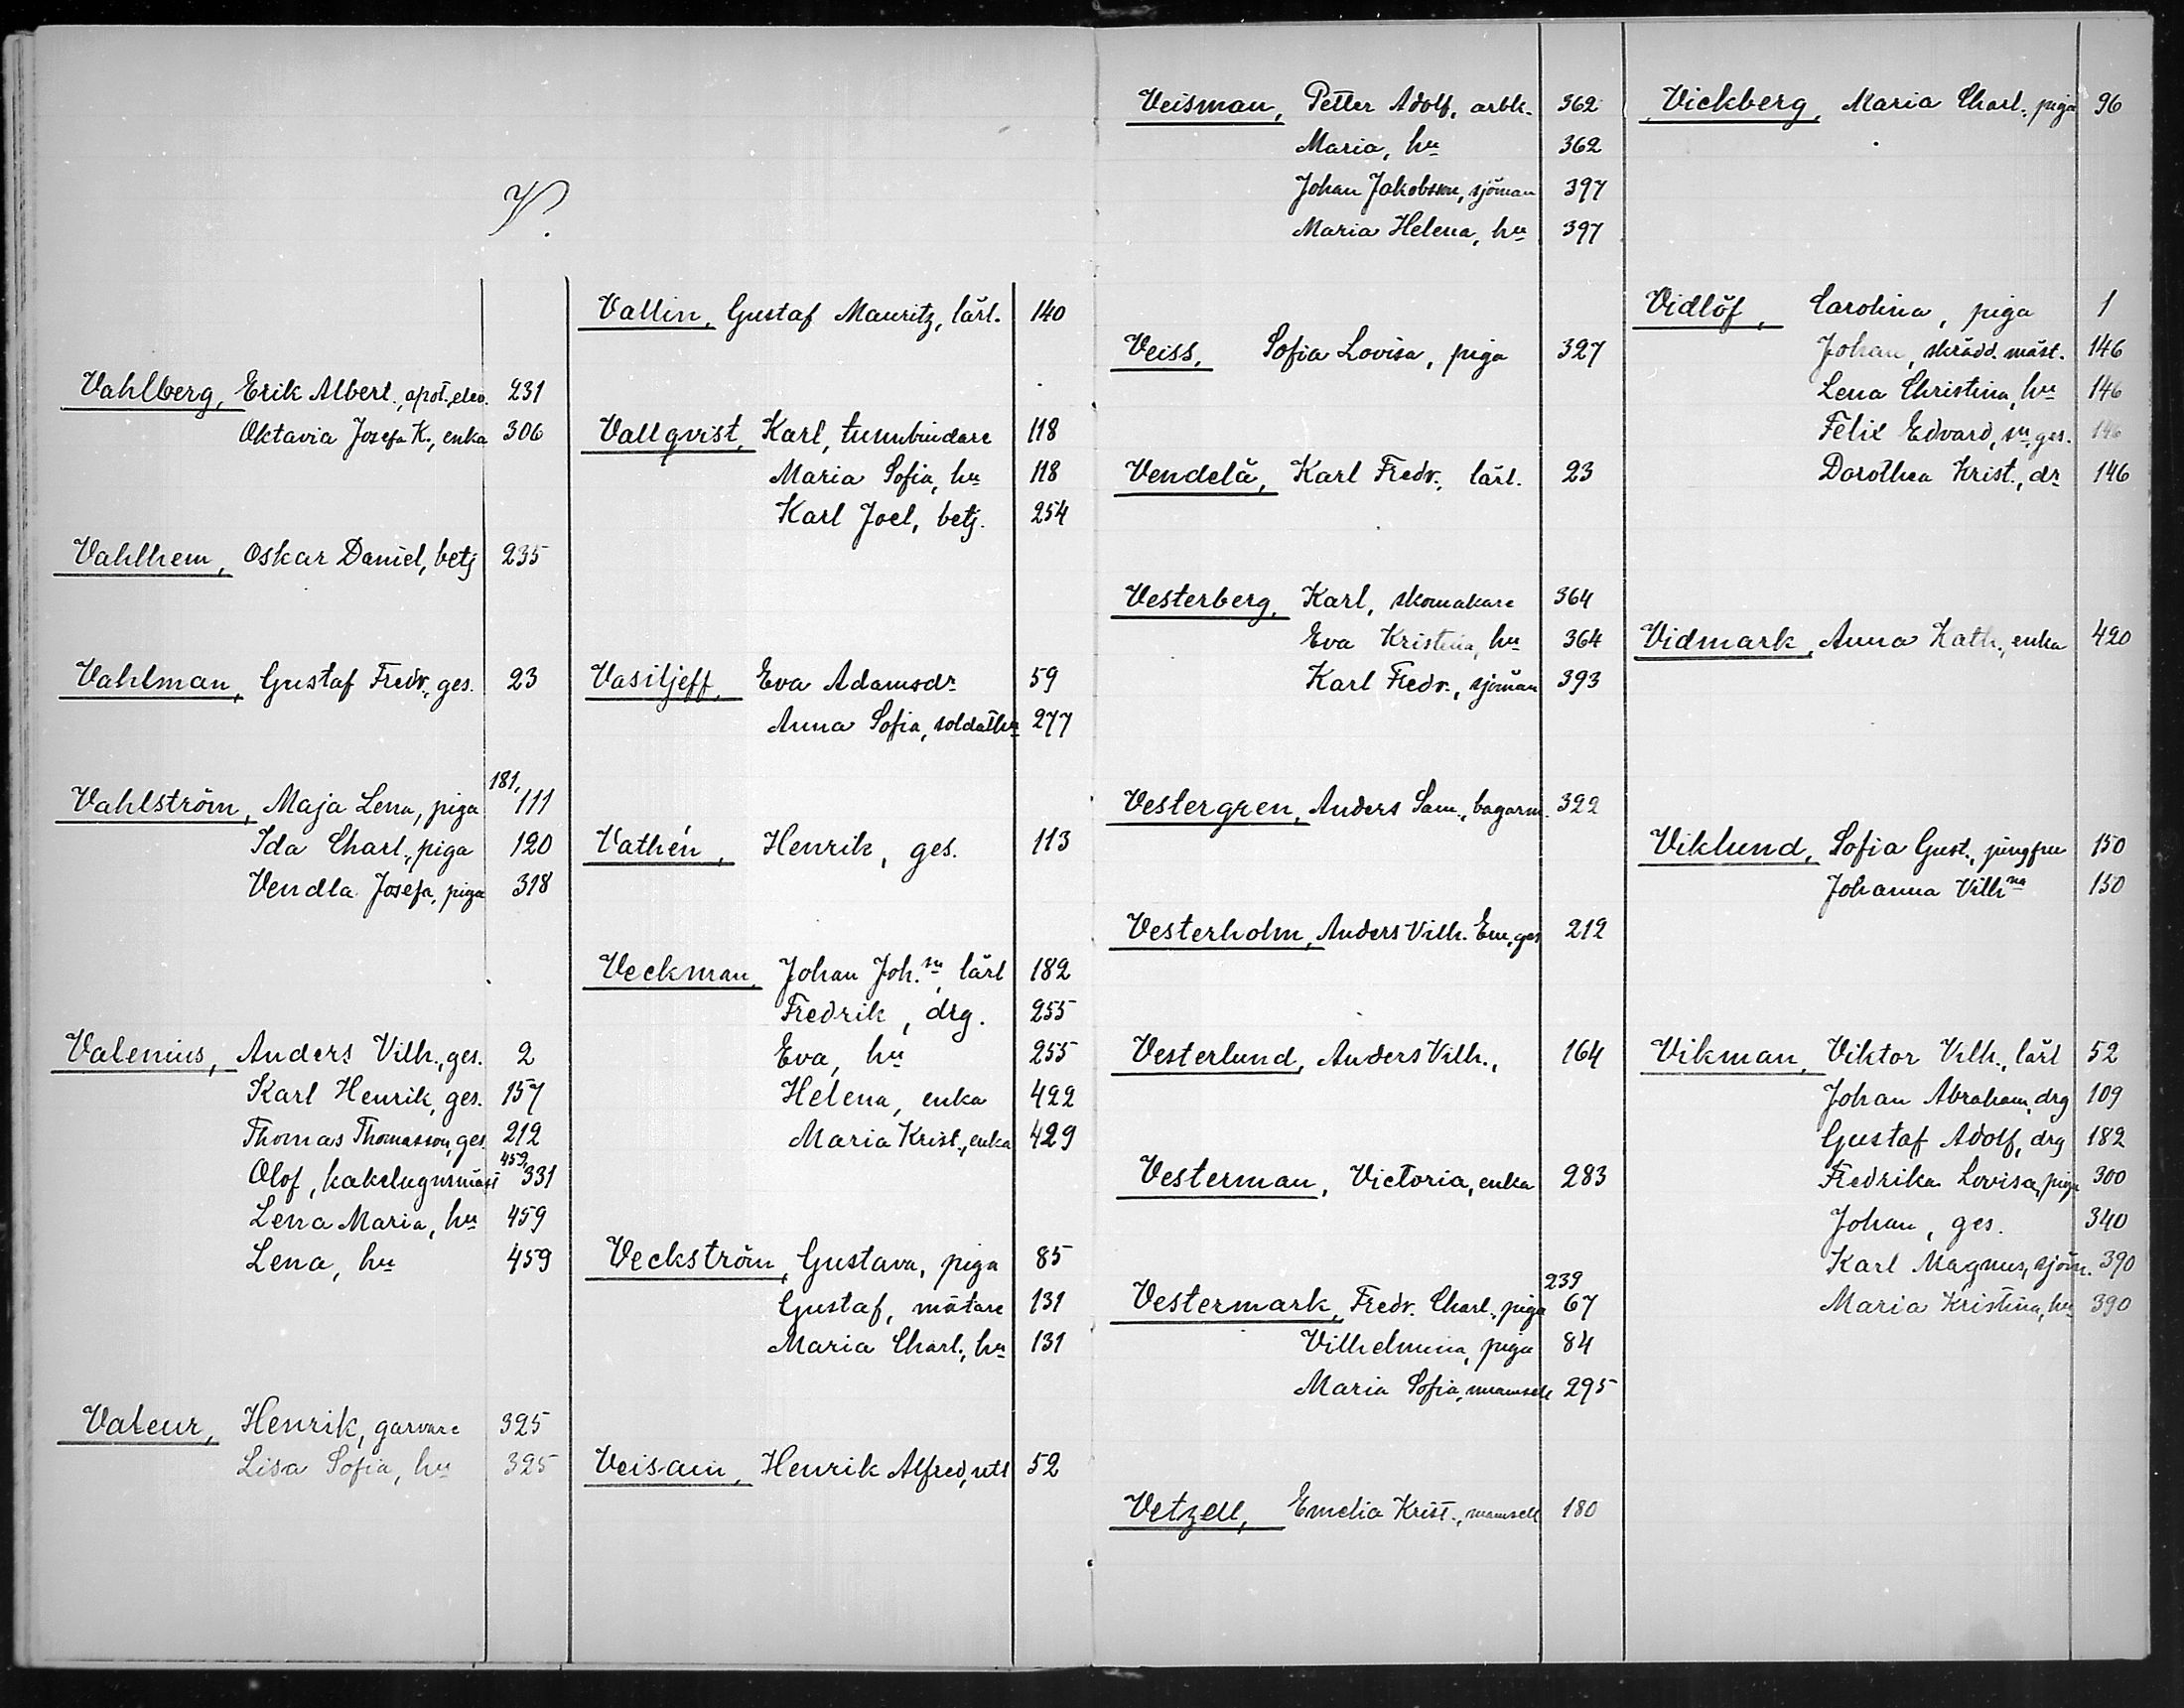 V.
Vahlberg, Erik Albert, apot. elev. 231
Oktavia Josefa K., enka 306
Vahlhem, Oskar Daniel, betj 235
Vahlman, Gustaf Fredr., ges. 23
Vahlström, Maja Lena, piga 181, 111
Ida Charl., piga 120
Vendla Josefa, piga 318
Valenius, Anders Vilh., ges. 2
Karl Henrik, ges. 157
Thomas Thomasson, ges 212
Olof, kakelugnsmäst 459, 331
Lena Maria, hu 459
Lena, hu 459
Valeur, Henrik, garvare 325
Lisa Sofia, hu 325
Vallin, Gustaf Mauritz, lärl. 140
Vallqvist, Karl, tunnbindare 118
Maria Sofia, hu 118
Karl Joel, betj. 254
Vasiljeff, Eva Adamsdr 59
Anna Sofia, soldathu 277
Vathén, Henrik, ges. 113
Veckman, Johan Joh.sn, lärl 182
Fredrik, drg. 255
Eva, hu 255
Helena, enka 422
Maria Krist., enka 429
Veckström, Gustava, piga 85
Gustaf, mätare 131
Maria Charl., hu 131
Veisain, Henrik Alfred, 52
Veisman, Petter Adolf, arbk. 362
Maria, hu 362
Johan Jakobsson, sjöman 397
Maria Helena, hu 397
Veiss, Sofia Lovisa, piga 327
Vendelä, Karl Fredr., lärl. 23
Vesterberg, Karl, skomakare 364
Eva Kristina, hu 364
Karl Fredr., sjöman 393
Vestergren, Anders Sam., bagarm. 322
Vesterholm, Anders Vilh. Em., ges 212
Vesterlund, Anders Vilh., 164
Vesterman, Victoria, enka 283
Vestermark, Fredr. Charl., piga 239 67
Vilhelmina, piga 84
Maria Sofia, mamsell 295
Vetzell, Emelia Krist., mamsell 180
Vickberg, Maria Charl., piga 96
Vidlöf, Carolina, piga 1
Johan, skrädd. mäst. 146
Lena Christina, hu 146
Felix Edvard, sn, ges. 146
Dorothea Krist., dr 146
Vidmark, Anna Kath., enka 420
Viklund, Sofia Gust., jungfru 150
Johanna Vilhna 150
Vikman, Viktor Vilh., lärl 52
Johan Abraham, drg 109
Gustaf Adolf, drg 182
Fredrika Lovisa, piga 300
Johan, ges. 340
Karl Magnus, sjöm. 390
Maria Kristina, hu 390